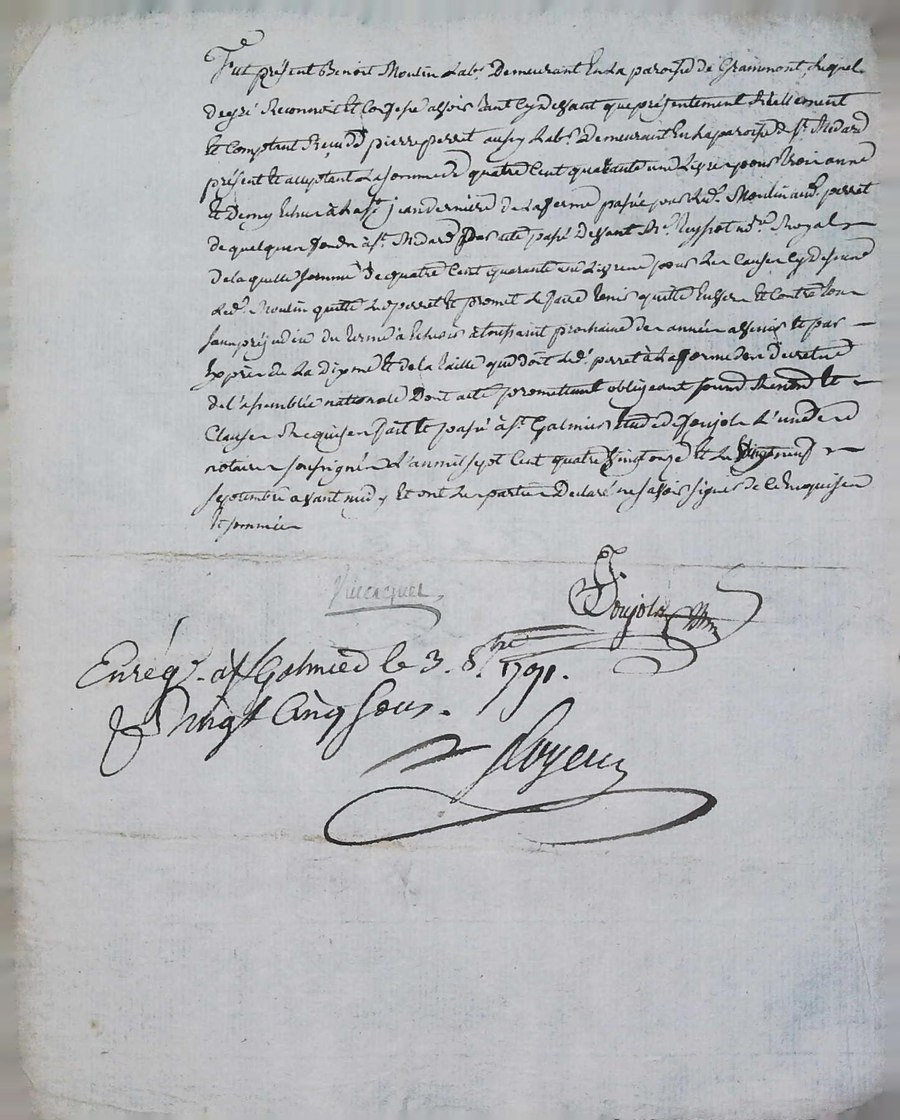 Fut présent Benoit Moulin Lab.r Demeurant En La paroisse de Grammont, Lequel
de gré Reconnoit Et Confesse avoir Eut Cy devant que présentement Réellement
Et Comptant Reçu de pierre perret aussy Lab.r Demeurant En La paroisse de St. Medard
présent Et acceptant La somme de quatre Cent quarante une Livre pour trois année
Et Demy Echue à La St. jean derniere de La ferme passée par Led. Moulin aud. perret
de quelques fonds à St. Medard par acte passé devant Me. not.re Royal
de laquelle somme de quatre Cent quarante une Livre pour Les Causes Cy dessus
Led. Moulin quitte Led. perret Et promet Le faire tenir quitte Envers Et Contre tous
sans préjudice du terme à Echoir à toussaint prochaine des années avenir Et par
Exprès de La dixme Et de la taille que doit Led. perret à La forme des Decrets
de l'assemblée nationale Dont acte promettant obligeant soumd. Renond. Et
Clauses Requises fait Et passé à St. Galmier Etude de Joujols L'un des
notaires soussignés L'an mil sept Cent quatre vingt onze Et Le vingt neuf
septembre avant midy Et ont Les parties Declaré ne savoir signer de Ce Enquises
Et sommées
Joujols
Enrég.é à St Galmier le 3. 8bre 1791.
R vingt Cinq Sous.